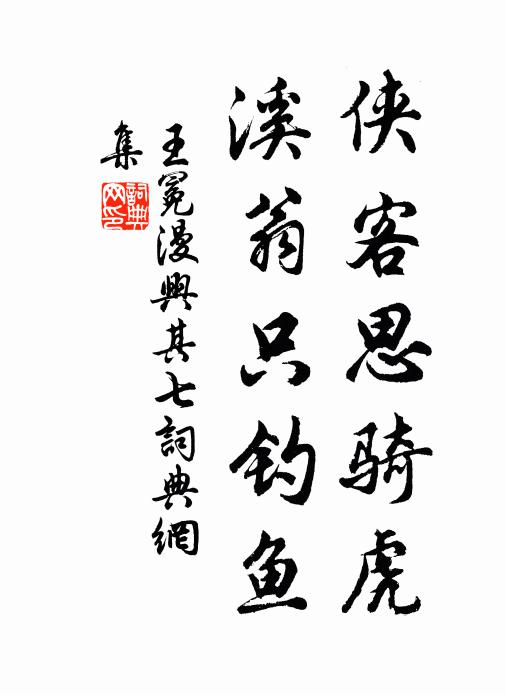 侠客思骑虎
溪翁只钓鱼
王冕漫興其七詞典網
集
詞典
网印